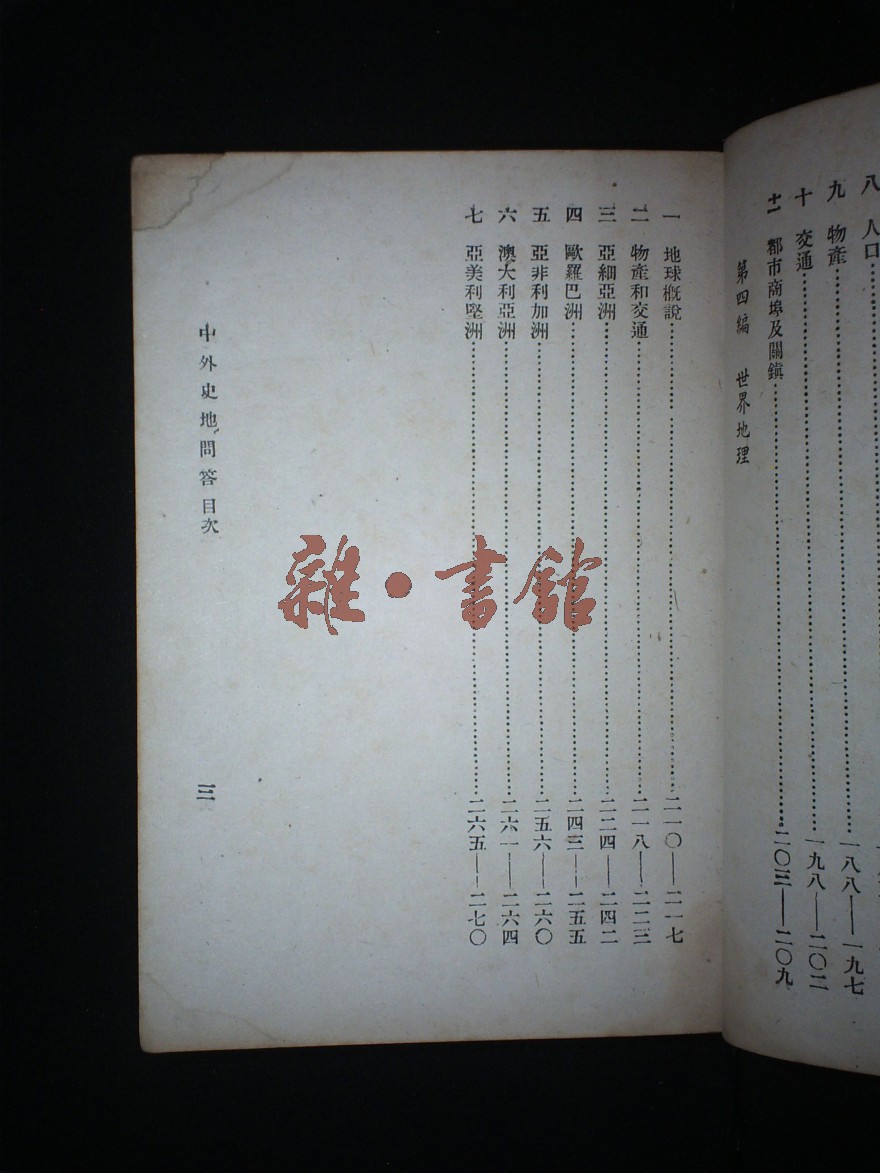 八　人口
九　物產　一八八——一九七
十　交通　一九八——二〇二
十一　都市商埠及關鎭　二〇三——二〇九
第四編　世界地理
一　地球槪說　二一〇——二一七
二　物產和交通　二一八——二二三
三　亞細亞洲　二二四——二四二
四　歐羅巴洲　二四三——二五五
五　亞非利加洲　二五六——二六〇
六　澳大利亞洲　二六一——二六四
七　亞美利堅洲　二六五——二七〇
中外史地問答目次
三
雜·書館